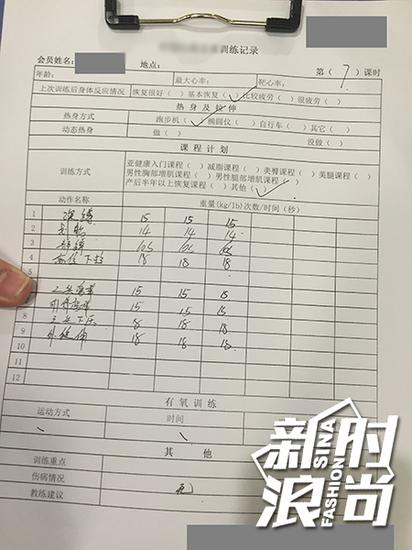 训练记录
会员姓名: 地点: 第( 7 )课时
年龄: 最大心率: 靶心率:
上次训练后身体反应情况 恢复很好( ) 基本恢复(✓) 比较疲劳( ) 很疲劳( )
热身及拉伸
热身方式 跑步机(✓) 椭圆仪( ) 自行车( ) 其它( )
动态热身 做( ) 没做( )
课程计划
训练方式 亚健康入门课程( ) 减脂课程( ) 美臀课程( ) 美腿课程( )
男性胸部增肌课程( ) 男性腿部增肌课程( )
产后半年以上恢复课程( ) 其他(✓)
动作名称 重量(kg/lb)次数/时间(秒)
1 15 15 15
2 14 14 14
3
4 18 18 18
5
15 15 15
15 15 15
8 三头下压 18 18 18
9 18 18 18
10
11
12
有氧训练
运动方式 时间
\ \
其他
训练重点
伤病情况 无
教练建议
新浪时尚
SINA FASHION